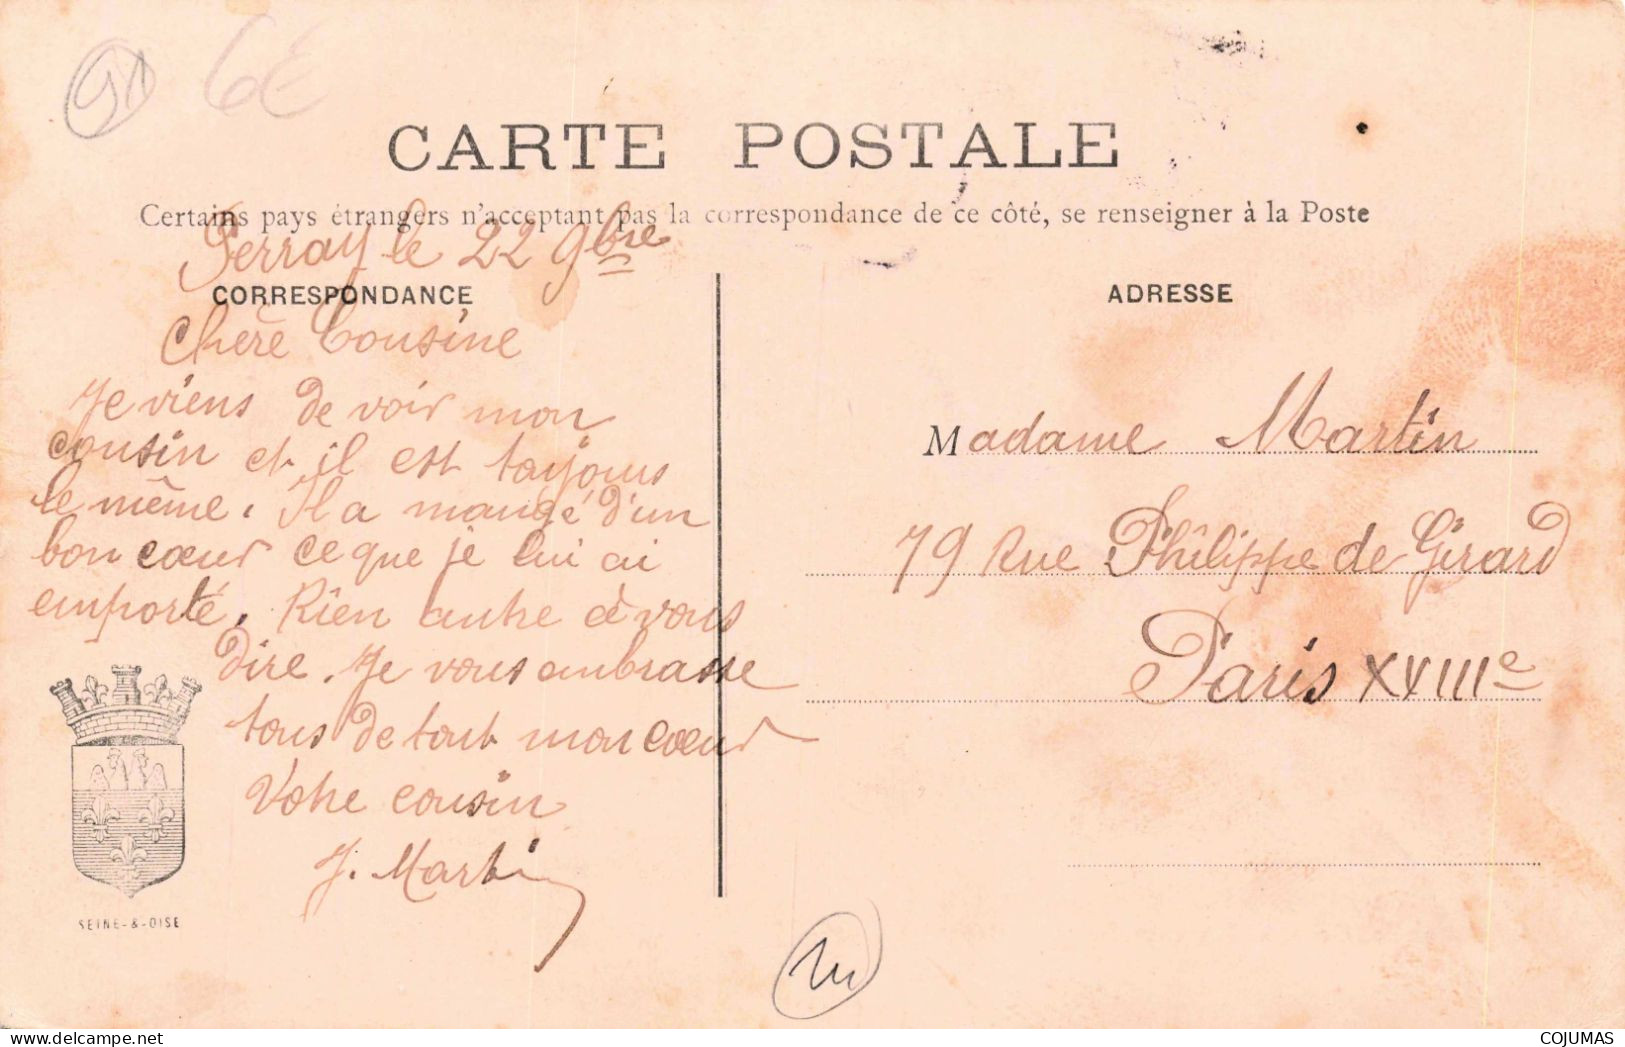 91
6€
CARTE POSTALE
Certains pays étrangers n'acceptant pas la correspondance de ce côté, se renseigner à la Poste
Perray le 22 9bre
CORRESPONDANCE
Chère Cousine
Je viens de voir mon
cousin et il est toujours
le même. Il a mangé d'un
bon cœur ce que je lui ai
emporté. Rien autre à vous
dire. Je vous embrasse
tous de tout mon cœur
Votre cousin
J. Martin
SEINE-&-OISE
ADRESSE
Madame Martin
79 Rue Philippe de Girard
Paris XVIIIe
COJUMAS